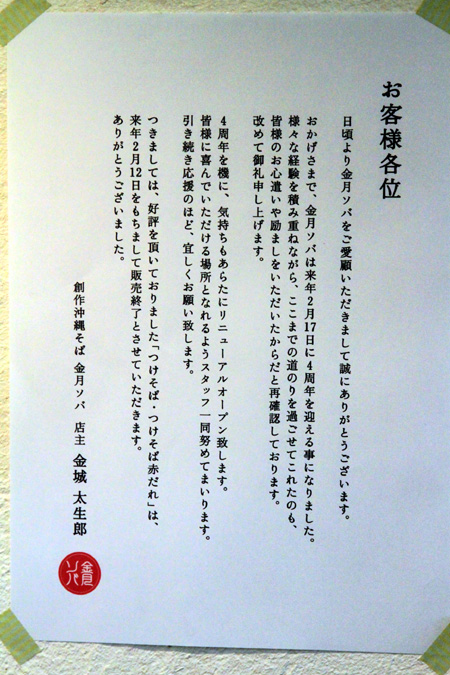 お客様各位
日頃より金月ソバをご愛願いただきまして誠にありがとうございます。
おかげさまで、金月ソバは来年2月17日に4周年を迎える事になりました。
様々な経験を積み重ねながら、ここまでの道のりを過ごせてこれたのも、
皆様のお心遣いや励ましをいただいたからだと再確認しております。
改めて御礼申し上げます。
4周年を機に、気持ちもあらたにリニューアルオープン致します。
皆様に喜んでいただける場所となれるようスタッフ一同努めてまいります。
引き続き応援のほど、宜しくお願い致します。
つきましては、好評を頂いておりました「つけそば・つけそば赤だれ」は、
来年2月12日をもちまして販売終了とさせていただきます。
ありがとうございました。
創作沖縄そば 金月ソバ 店主 金城 太生郎
金月
ソバ